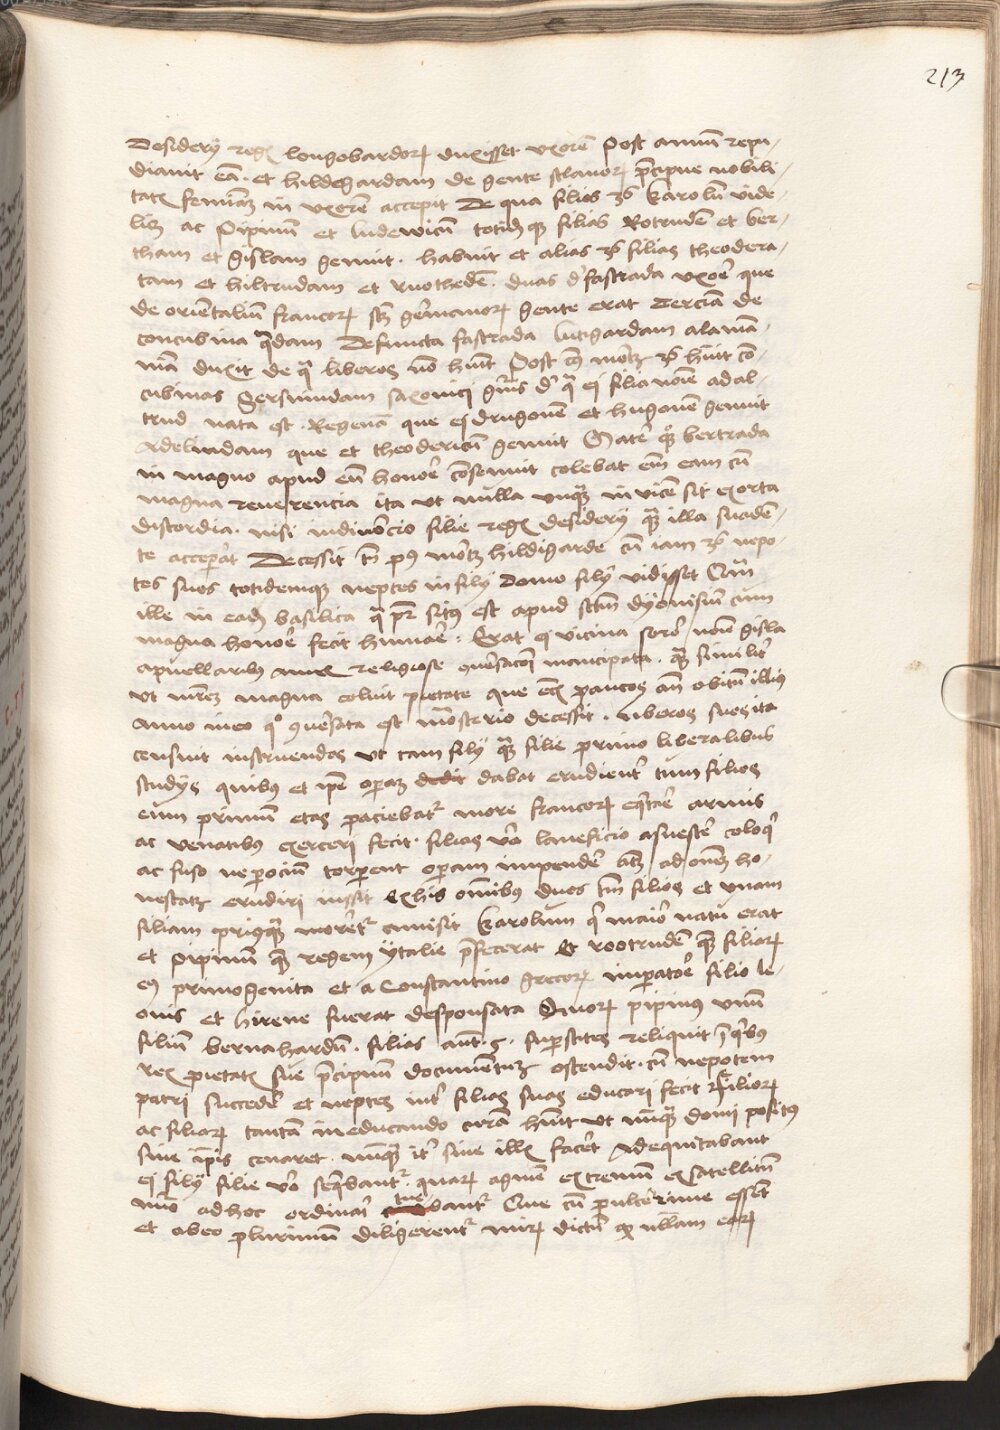 213
Desiderij regis longobardorum duxisset uxorem Post annum repu-
diavit eam. et hildegardam de gente sclavorum precipue nobili-
tatis feminam in uxorem accepit De qua filios 3es karolum vide-
licet ac Pypinum et ludewicum totidemque filias Rotrudem et ber-
tham et gislam genuit. habuit et alias 3es filias theodera-
tam et hiltrudam et ruothedem. duas de fastrada uxore que
de orientalium francorum scilicet germanorum gente erat terciam de
concubina quadam Defuncta fastrada lutgardam alaman-
nam duxit de qua liberos non habuit Post cuius mortem 3es habuit con-
cubinas Gersuindam saxonici generis de qua ei filia nomine adal-
trud nata est. Regenam que ei drugonem et hugonem genuit
Adelindam que et theodericum genuit Mater quoque bertrada
in magno apud eum honore consenuit colebat enim eam cum
magna reverencia ita ut nulla unquam invicem sit exorta
discordia. nisi in divorcio filie regis desiderij quam illa suaden-
te acceperat Decessit tamen post mortem hildigarde cum iam 3es nepo-
tes suos totidemque neptes in filij domo filij vidisset Quam
ille in eadem basilica qua pater situs est apud sanctum dyonisium cum
magna honore fecit humare. Erat ei unica soror nomine gisla
a puellaribus annis religiose conversacioni mancipata. quam similiter
ut matrem magna coluit pietate que eciam paucos ante obitum illius
anno in eo quo conversata est monasterio decessit. liberos suos ita
censuit instruendos ut tam filij quam filie primo liberalibus
studijs quibus et ipse operam dedit dabat erudientur tum filios
cum primum etas paciebatur more francorum equitare armis
ac venatibus exerceri fecit. filias vero laneficio asuescere coloque
ac fuso ne per ocium torperent operam impendere atque ad omnem ho-
nestatem erudiri iussit Ex his omnibus duos tantum filios et unam
filiam priusquam moreretur amisit karolum qui maior natu erat
et pipinum quem regem ytalie prefecerat Et rootrudem quam filiarum
eius primogenita et a Constantino grecorum imperatore filio le-
onis et hirene fuerat desponsata Quorum pipinus unum
filium bernahardum. filias autem 5. superstites reliquit in quibus
rex pietatis sue precipuum documentum ostendit. cum nepotem
patri succedere et neptes inter filias suas educari fecit Filiorum
ac filiarum tantam in educando curam habuit ut nunquam domi positus
sine ipsis cenaret. nunquam iter sine illis faceret Adequitabant
ei filij filie vero sequebantur. quarum agmen extremum ex satellitum
numero ad hoc ordinati tuebantur Que cum pulcerrime essent
et ab eo plurimum diligerentur mirum dictum quod nullam earum